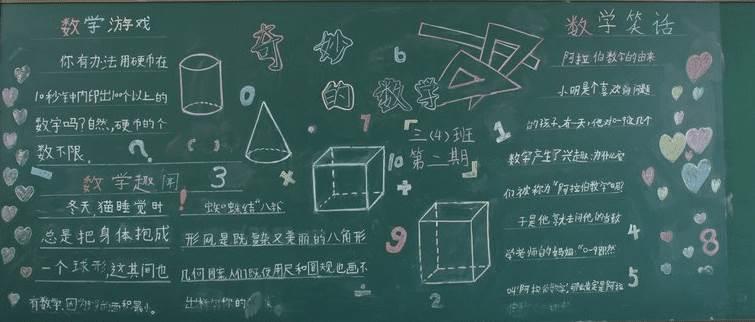 数学游戏
你有办法用硬币在
10秒钟内印出100个以上的
数字吗?自然,硬币的个
数不限。
?
数学趣闻
冬天,猫睡觉时
总是把身体抱成
一个球形,这其间也
有数学,因为
面积最小。
3
蜘蛛结"八卦"
形网,是既复杂又美丽的八角形
几何图案,人们既使用尺和圆规也画不
出
奇妙
的数学
三(4)班
第二期
6
0
7
10
×
+
÷
9
2
1
4
5
8
数学笑话
阿拉伯数字的由来
小明是个喜欢问问题
的孩子,有一天,他对0-9这几个
数字产生了兴趣:为什么它
们被称为"阿拉伯数字"呢
于是他就去问他的当数
学老师的妈妈:"0-9既然
叫"阿拉伯数字,那肯定是阿拉